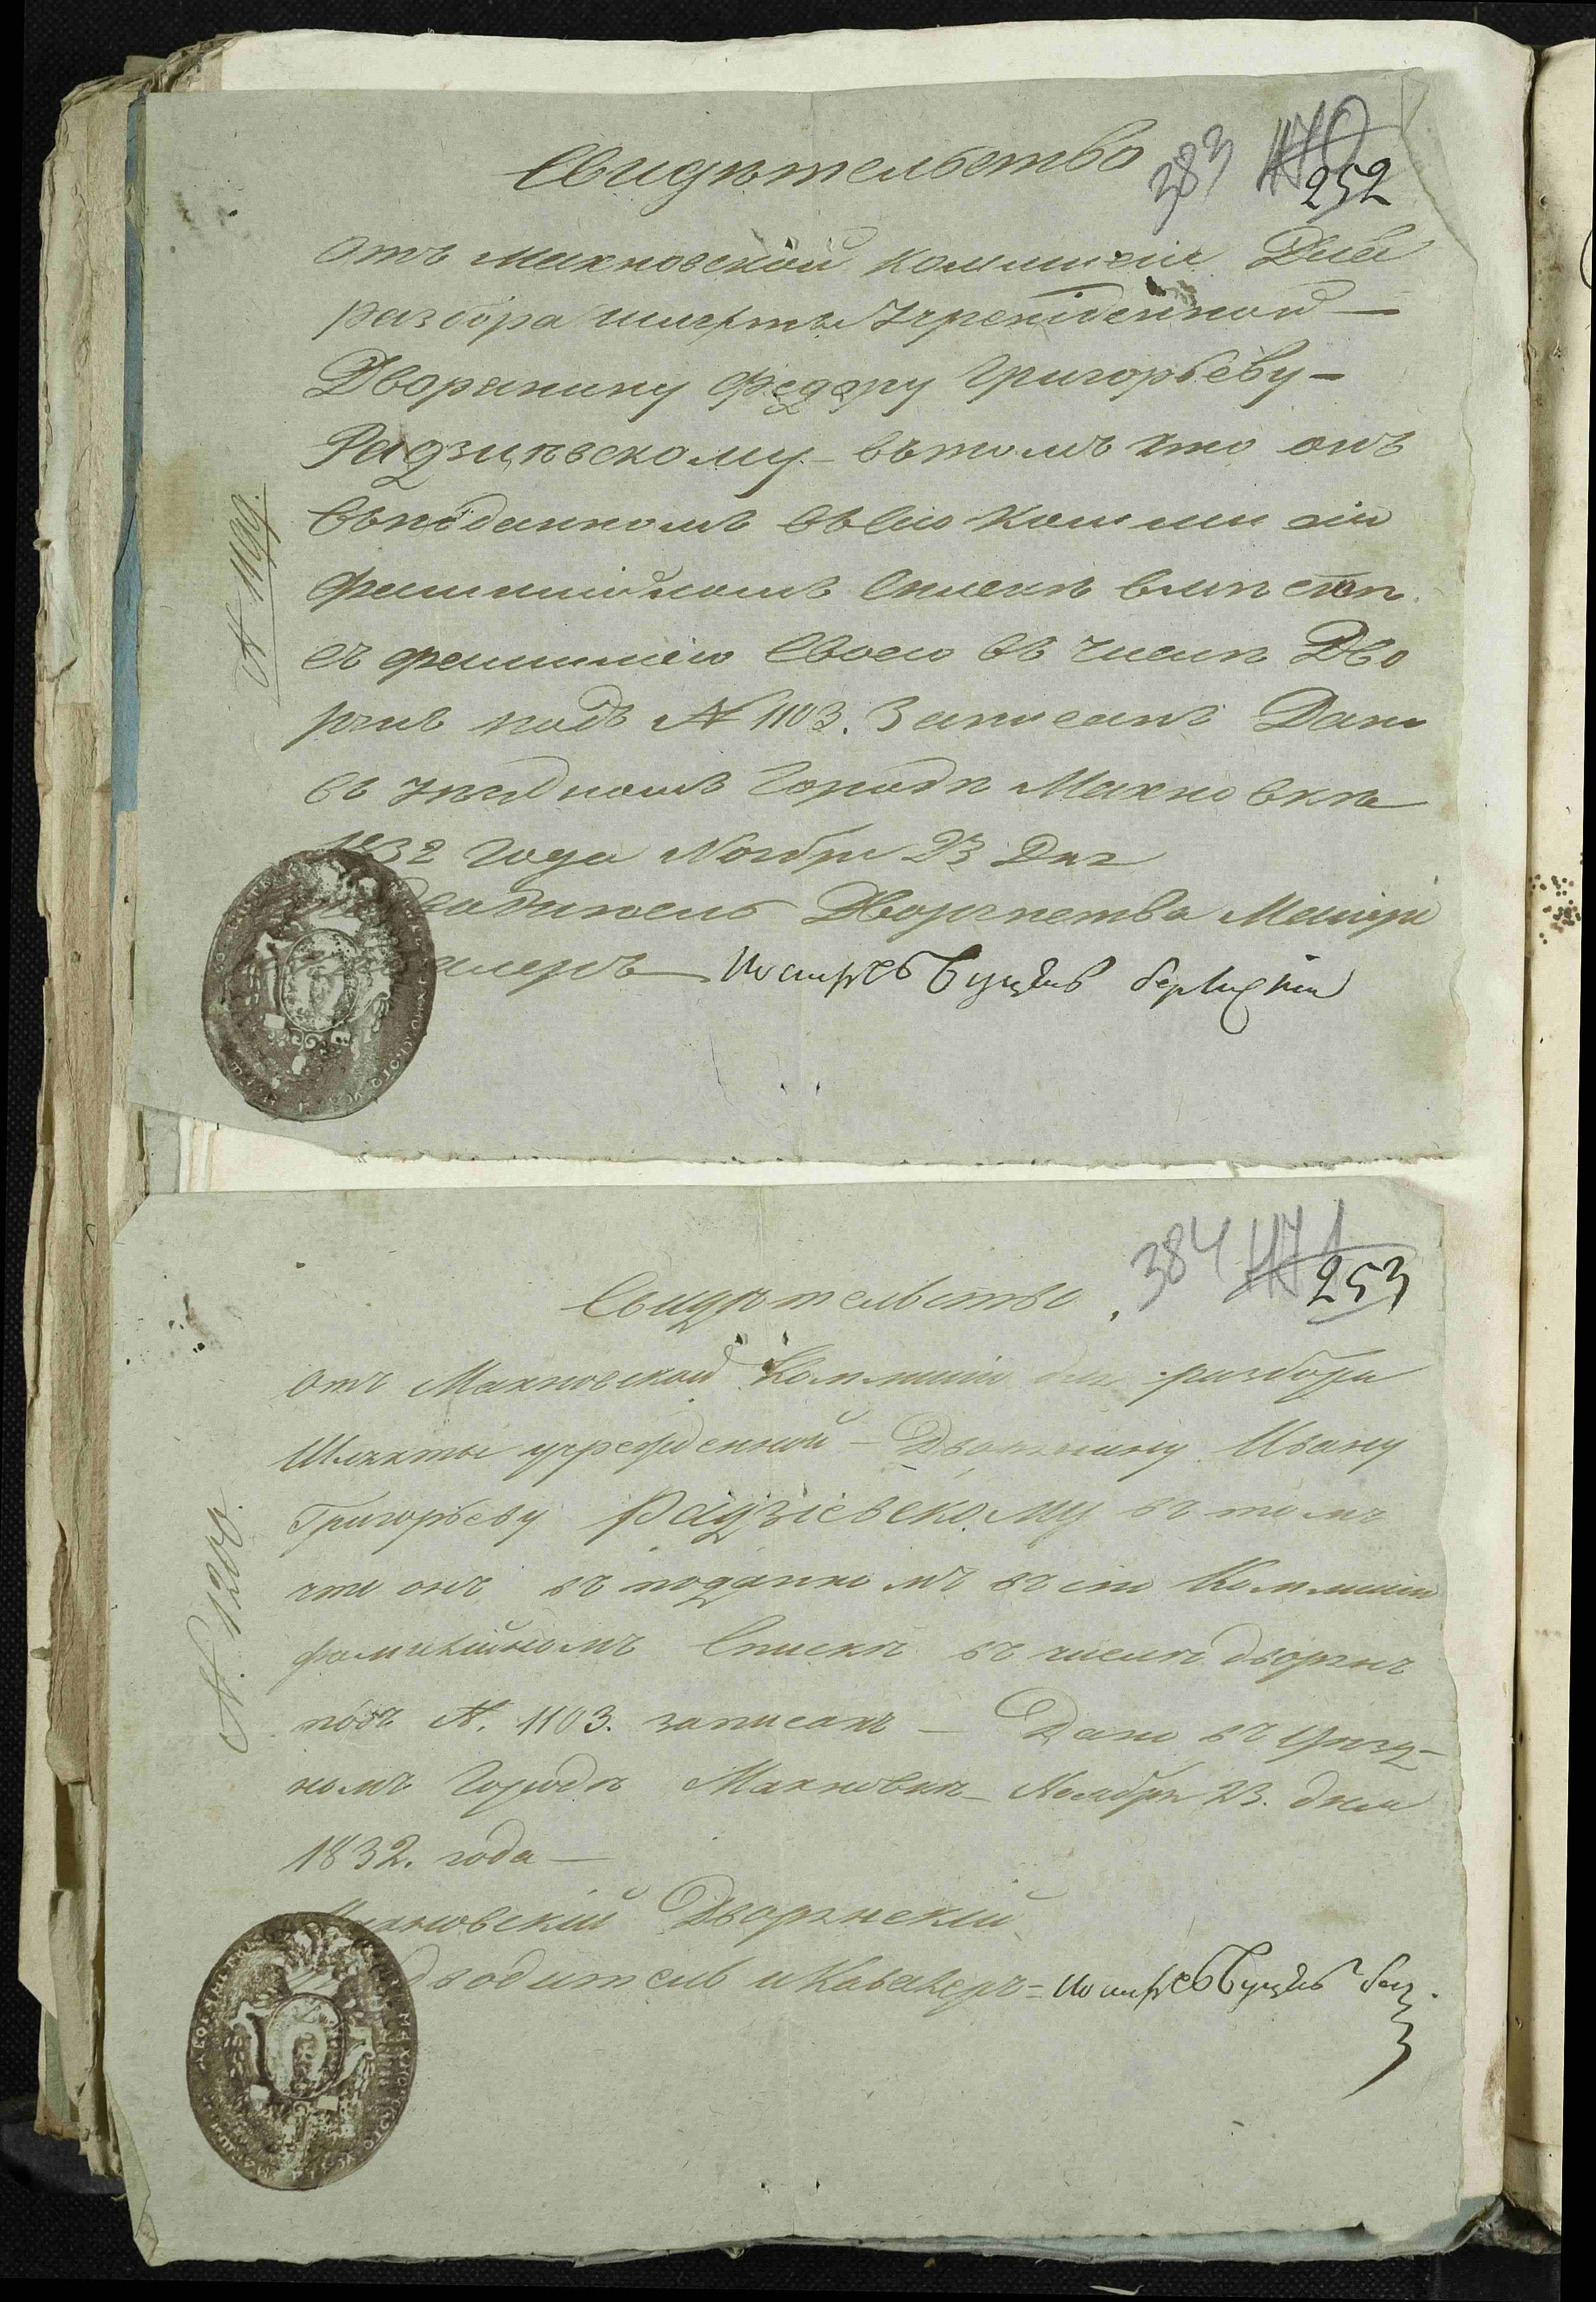 Свидѣтельство
383 470
252
Отъ Махновской Коммисіи Для
разбора шляхты Учрежденной —
Дворянину Федору Григорьеву —
Радзіевскому — вътомъ что онъ
Въподанномъ въсію Коммисію
Фамилійномъ Спискѣ вмѣстѣ
съ фамиліею Своею въ числѣ Дво
рянъ подъ № 1103. Записанъ Дано
въ уѣздномъ Городѣ Махновкѣ
1832 Года Ноября 23 Дня
Дворянства
№ 1199.
384 471
253
Свидѣтельство
отъ Махновской Коммисіи для разбора
Шляхты учрежденной — Дворянину Ивану
Григорьеву Радзіевскому въ томъ
что онъ въ поданномъ въ сію Коммисію
фамилійномъ Спискѣ въ числѣ дворянъ
подъ №. 1103. записанъ — Дано въ Уѣзд-
номъ Городѣ Махновкѣ — Ноября 23. дня
1832. года —
Махновскій Дворянскій
Предводитель и Кавалеръ =
№. 1200.